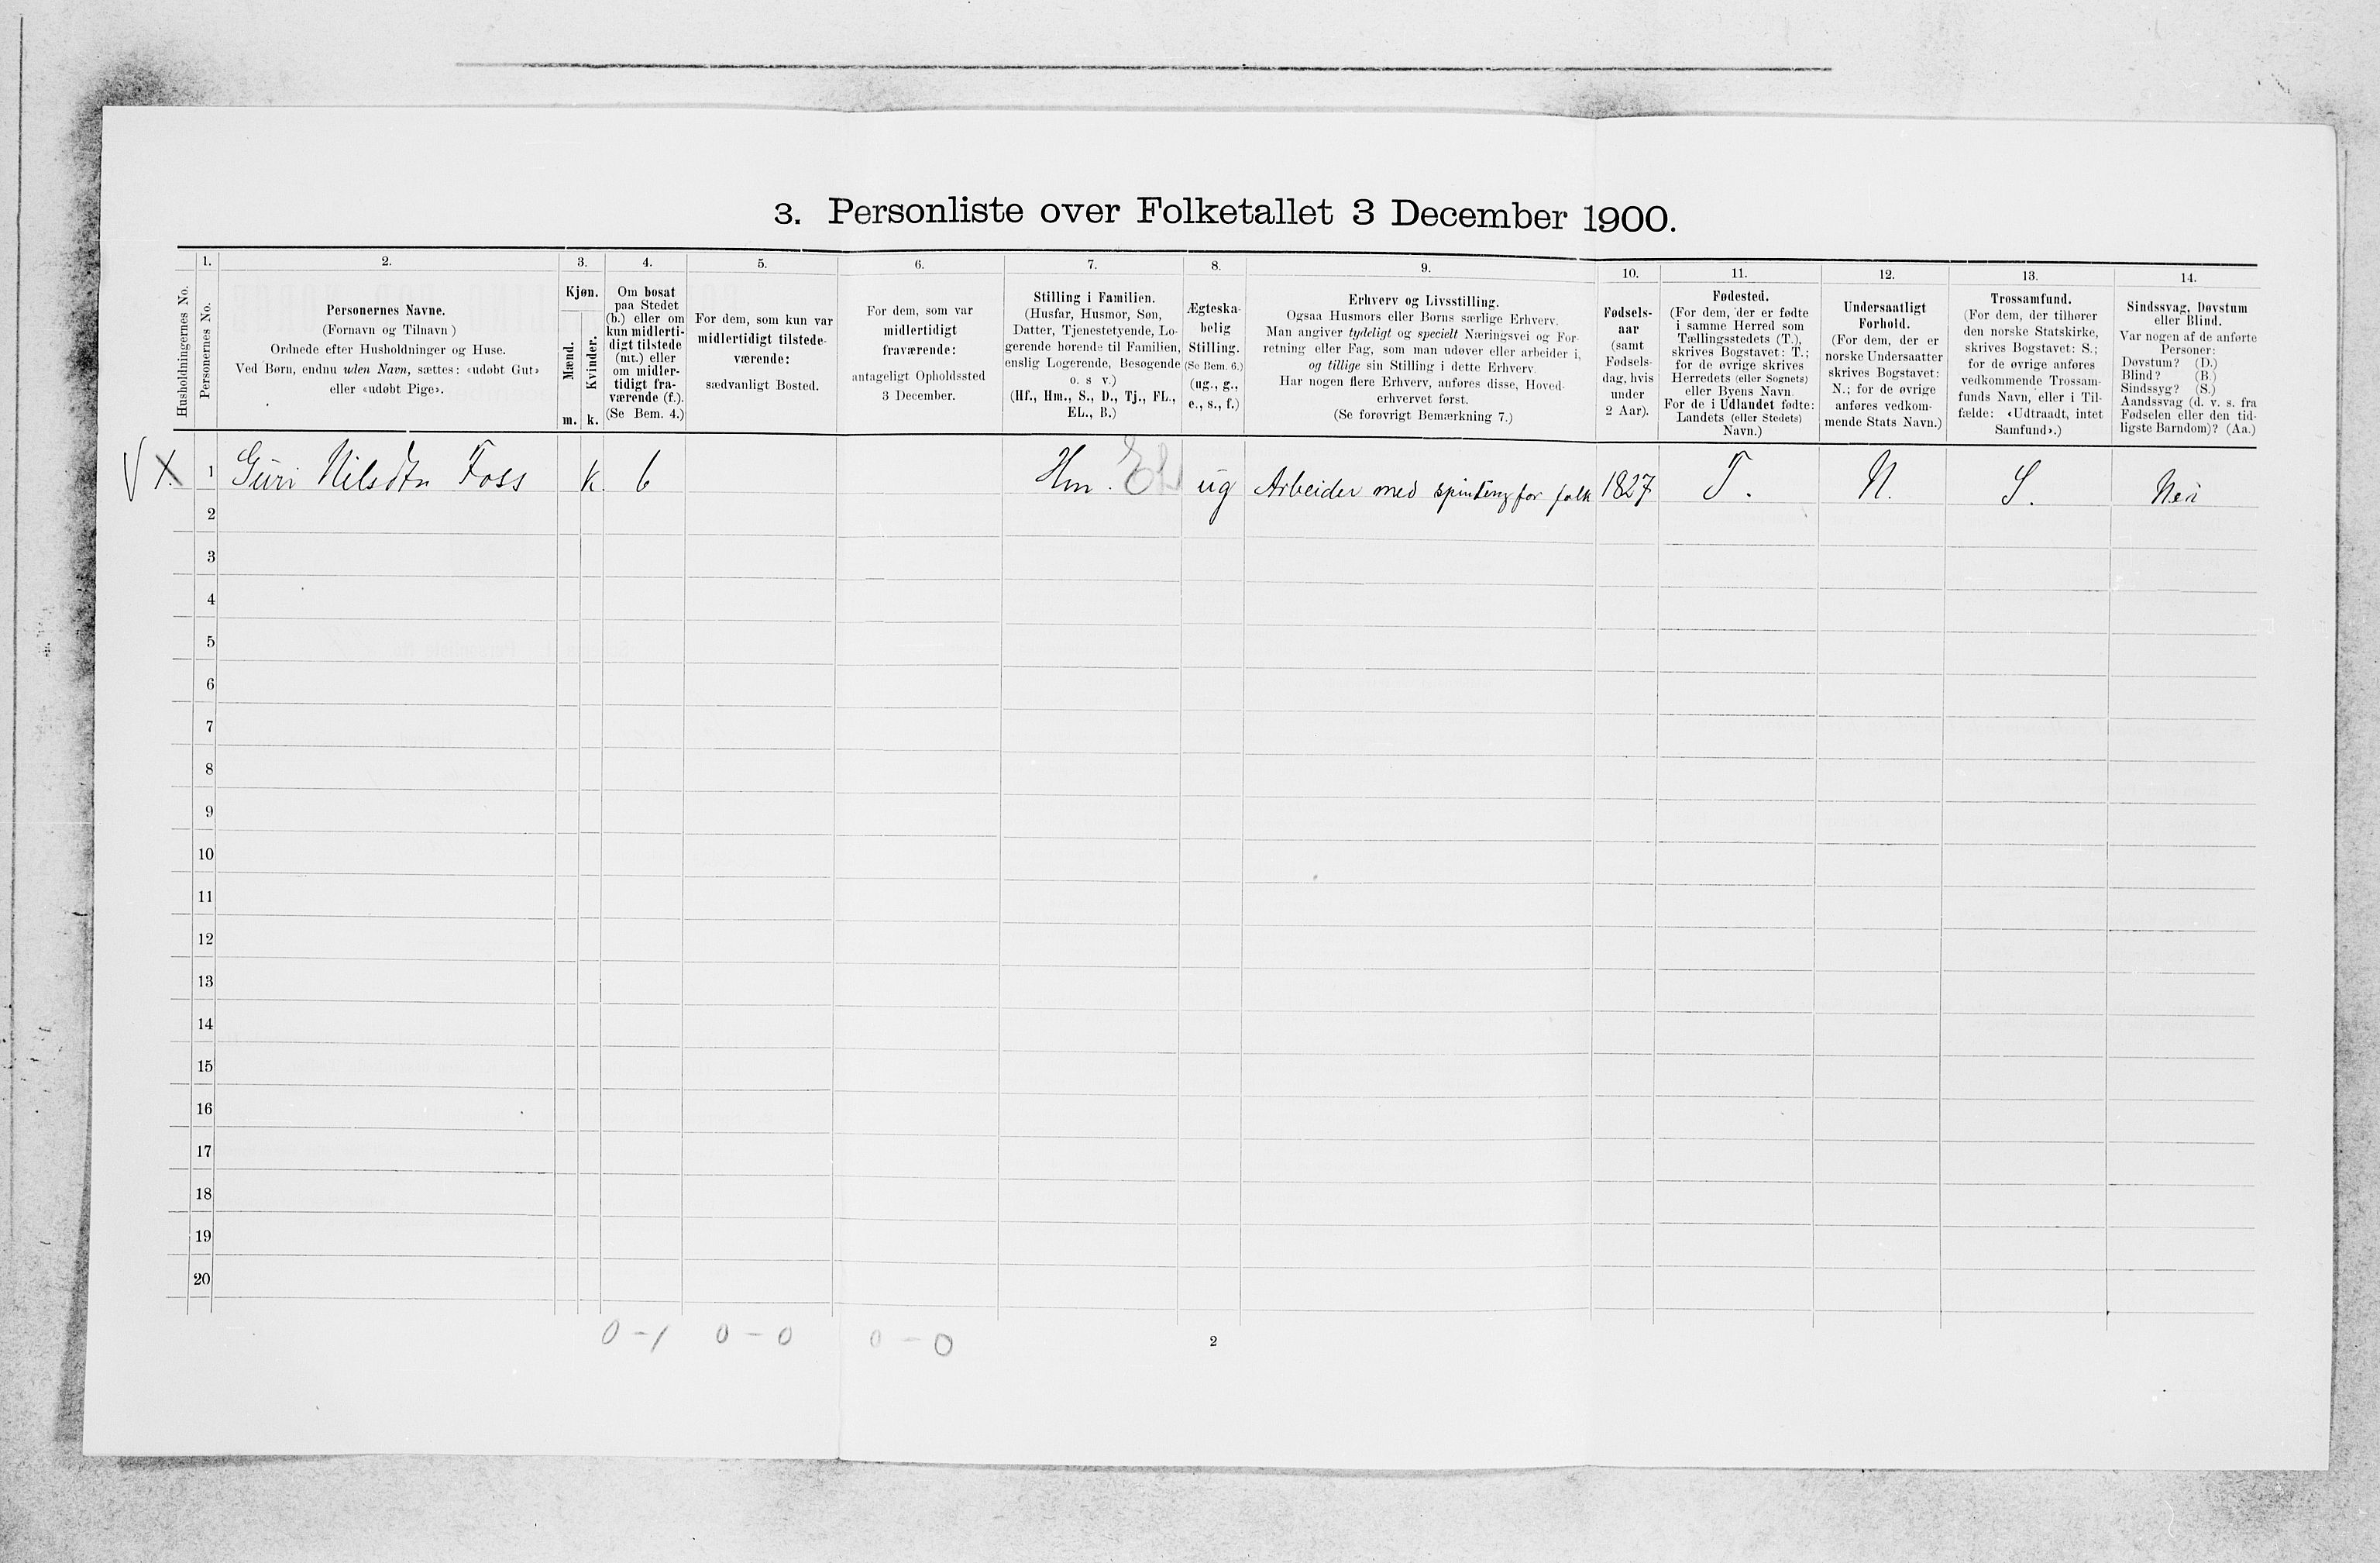 3. Personliste over Folketallet 3 December 1900.
1. 2. 3. 4. 5. 6. 7. 8. 9. 10. 11. 12. 13. 14.
Husholdningernes No.
Personernes No.
Personernes Navne.
(Fornavn og Tilnavn )
Ordnede efter Husholdninger og Huse.
Ved Børn, endnu uden Navn, sættes: «udøbt Gut»
eller «udøbt Pige».
Kjøn.
Mænd.
Kvinder.
m. k.
Om bosat
paa Stedet
(b.) eller om
kun midlerti-
digt tilstede
(mt.) eller
om midler-
tidigt fra-
værende (f.).
(Se Bem. 4.)
For dem, som kun var
midlertidigt tilstede-
værende:
sædvanligt Bosted.
For dem, som var
midlertidigt
fraværende:
antageligt Opholdssted
3 December.
Stilling i Familien.
(Husfar, Husmor, Søn,
Datter, Tjenestetyende, Lo-
gerende hørende til Familien,
enslig Logerende, Besøgende
o. s v.)
(Hf., Hm., S., D., Tj., FL.,
EL., B.)
Ægteska-
belig
Stilling.
(Se Bem. 6.)
(ug., g.,
e., s., f.)
Erhverv og Livsstilling.
Ogsaa Husmors eller Børns særlige Erhverv.
Man angiver tydeligt og specielt Næringsvei og For-
retning eller Fag, som man udøver eller arbeider i,
og tillige sin Stilling i dette Erhverv.
Har nogen flere Erhverv, anføres disse, Hoved-
erhvervet først.
(Se forøvrigt Bemærkning 7.)
Fødsels-
aar
(samt
Fødsels-
dag, hvis
under
2 Aar).
Fødested.
(For dem, der er fødte
i samme Herred som
Tællingsstedets (T.),
skrives Bogstavet: T.;
for de øvrige skrives
Herredets (eller Sognets)
eller Byens Navn.
For de i Udlandet fødte:
Landets (eller Stedets)
Navn.)
Undersaatligt
Forhold.
(For dem, der er
norske Undersaatter
skrives Bogstavet:
N.; for de øvrige
anføres vedkom-
mende Stats Navn.)
Trossamfund.
(For dem, der tilhører
den norske Statskirke,
skrives Bogstavet: S.;
for de øvrige anføres
vedkommende Trossam-
funds Navn, eller i Til-
fælde: «Udtraadt, intet
Samfund».)
Sindssvag, Døvstum
eller Blind.
Var nogen af de anførte
Personer:
Døvstum? (D.)
Blind? (B.)
Sindssyg? (S.)
Aandssvag (d. v. s. fra
Fødselen eller den tid-
ligste Barndom)? (Aa.)
1 Guri Nilsdtr Foss k. b Hm. El ug Arbeider med spinding for folk 1827 T. N. S. Nei
2
3
4
5
6
7
8
9
10
11
12
13
14
15
16
17
18
19
20
0-1 0-0 0-0
2